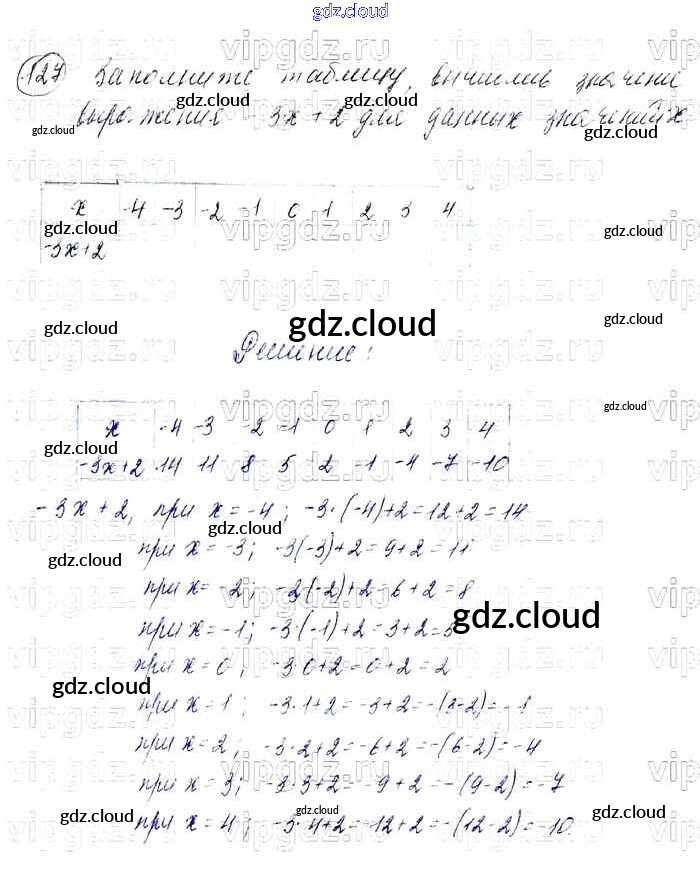 gdz.cloud
127 Заполните таблицу, вычислив значение
выражения -3x+2 для данных значений x
x -4 -3 -2 -1 0 1 2 3 4
-3x+2
Решение:
x -4 -3 -2 -1 0 1 2 3 4
-3x+2 14 11 8 5 2 -1 -4 -7 -10
-3x+2, при x=-4; -3·(-4)+2=12+2=14
при x=-3; -3(-3)+2=9+2=11
при x=-2; -2(-2)+2=6+2=8
при x=-1; -3·(-1)+2=3+2=5
при x=0; -3·0+2=0+2=2
при x=1; -3·1+2=-3+2=-(3-2)=-1
при x=2; -3·2+2=-6+2=-(6-2)=-4
при x=3; -3·3+2=-9+2=-(9-2)=-7
при x=4; -3·4+2=-12+2=-(12-2)=-10